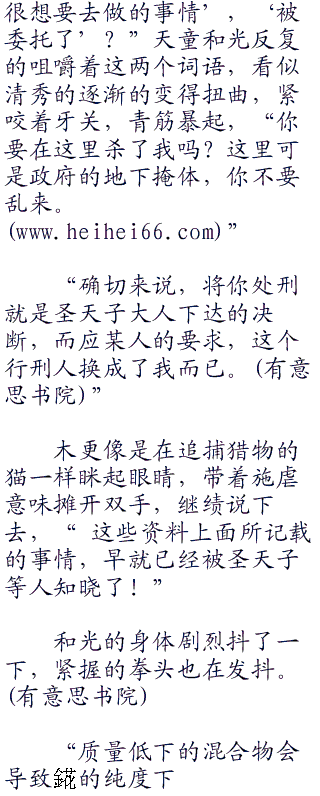 很想要去做的事情’，‘被
委托了’？”天童和光反复
的咀嚼着这两个词语，看似
清秀的逐渐的变得扭曲，紧
咬着牙关，青筋暴起，“你
要在这里杀了我吗？这里可
是政府的地下掩体，你不要
乱来。
(www.heihei66.com)”
“确切来说，将你处刑
就是圣天子大人下达的决
断，而应某人的要求，这个
行刑人换成了我而已。(有意
思书院)”
木更像是在追捕猎物的
猫一样眯起眼睛，带着施虐
意味摊开双手，继续说下
去，“ 这些资料上面所记载
的事情，早就已经被圣天子
等人知晓了！”
和光的身体剧烈抖了一
下，紧握的拳头也在发抖。
(有意思书院)
“质量低下的混合物会
导致的纯度下